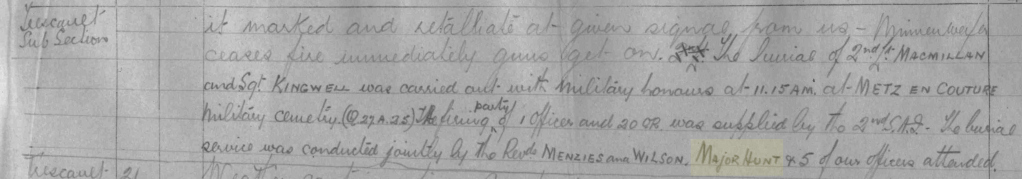 Trescault it marked and retalliate at given signal from us - Minnenwerfer
Sub Section ceases fire immediately guns get on. The burial of 2nd Lt MACMILLAN
and Sgt KINGWELL was carried out with military honours at 11.15 AM. at METZ EN COUTURE
Military cemetry. (Q 27A.25) The firing party of 1 Officer and 20 OR was supplied by the 2nd S.A.I. The burial
service was conducted jointly by the Revds MENZIES and WILSON. MAJOR HUNT & 5 of our officers attended.
Trescault 21